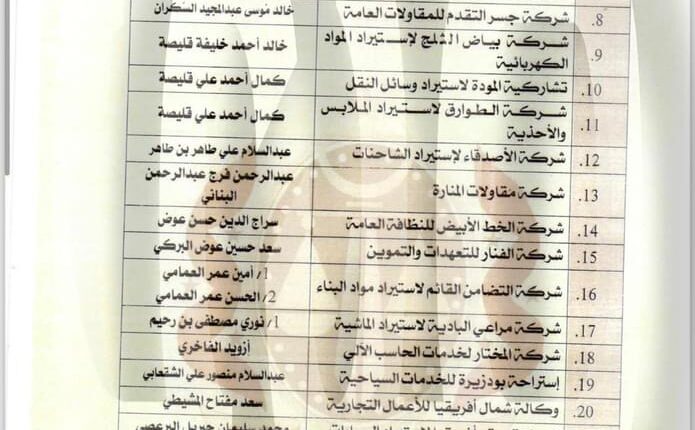 8. شركة جسر التقدم للمقاولات العامة خالد موسى عبدالمجيد السكران
9. شركة بياض الثلج لإستيراد المواد الكهربائية خالد أحمد خليفة قليصة
10. تشاركية المودة لاستيراد وسائل النقل كمال أحمد علي قليصة
11. شركة الطوارق لاستيراد الملابس والأحذية كمال أحمد علي قليصة
12. شركة الأصدقاء لإستيراد الشاحنات عبدالسلام علي طاهر بن طاهر
13. شركة مقاولات المنارة عبدالرحمن فرج عبدالرحمن البناني
14. شركة الخط الأبيض للنظافة العامة سراج الدين حسن عوض
15. شركة الفنار للتعهدات والتموين سعد حسين عوض البركي
16. شركة التضامن القائم لاستيراد مواد البناء 1/ أمين عمر العمامي
2/ الحسن عمر العمامي
17. شركة مراعي البادية لاستيراد الماشية 1/ نوري مصطفى بن رحيم
18. شركة المختار لخدمات الحاسب الآلي أزويد الفاخري
19. إستراحة بودزيرة للخدمات السياحية عبدالسلام منصور علي الشقعابي
20. وكالة شمال أفريقيا للأعمال التجارية سعد مفتاح المشيطي
محمد سليمان جبريل البرعصي